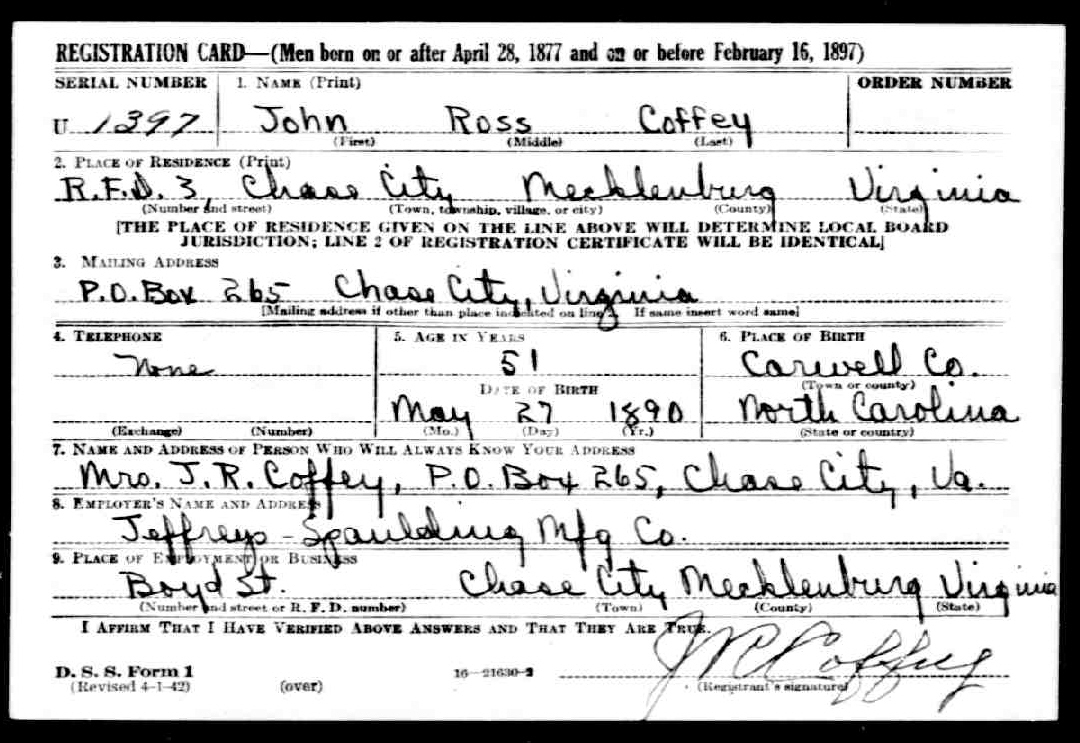 REGISTRATION CARD—(Men born on or after April 28, 1877 and on or before February 16, 1897)
SERIAL NUMBER 1. NAME (Print) ORDER NUMBER
U 1397 John Ross Coffey
(First) (Middle) (Last)
2. PLACE OF RESIDENCE (Print)
R.F.D. 3, Chase City Mecklenburg Virginia
(Number and street) (Town, township, village, or city) (County) (State)
[THE PLACE OF RESIDENCE GIVEN ON THE LINE ABOVE WILL DETERMINE LOCAL BOARD
JURISDICTION; LINE 2 OF REGISTRATION CERTIFICATE WILL BE IDENTICAL]
3. MAILING ADDRESS
P.O. Box 265 Chase City, Virginia
[Mailing address if other than place indicated on line 2. If same insert word same]
4. TELEPHONE 5. AGE IN YEARS 6. PLACE OF BIRTH
None 51 Caswell Co.
(Town or county)
DATE OF BIRTH
May 27 1890 North Carolina
(Exchange) (Number) (Mo.) (Day) (Yr.) (State or country)
7. NAME AND ADDRESS OF PERSON WHO WILL ALWAYS KNOW YOUR ADDRESS
Mrs. J. R. Coffey, P.O. Box 265, Chase City, Va.
8. EMPLOYER'S NAME AND ADDRESS
Jeffreys - Spaulding Mfg Co.
9. PLACE OF EMPLOYMENT OR BUSINESS
Boyd St. Chase City Mecklenburg Virginia
(Number and street or R. F. D. number) (Town) (County) (State)
I AFFIRM THAT I HAVE VERIFIED ABOVE ANSWERS AND THAT THEY ARE TRUE.
D. S. S. Form 1 16—21630-2 J R Coffey
(Revised 4-1-42) (over) (Registrant's signature)